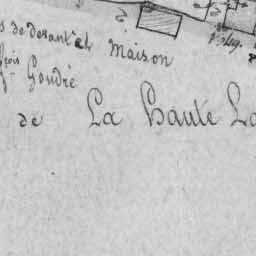 s de devant et Maison
frois Goudré
de La Haute La